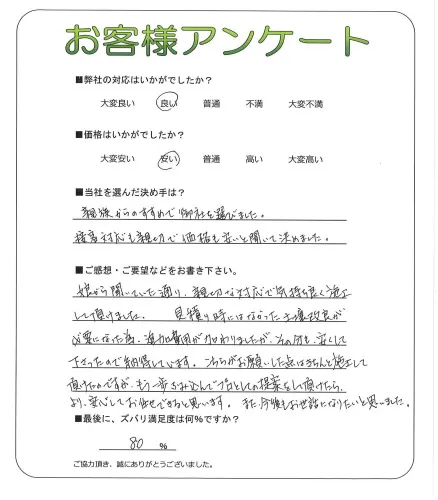 お客様アンケート
■弊社の対応はいかがでしたか？
大変良い 良い 普通 不満 大変不満
■価格はいかがでしたか？
大変安い 安い 普通 高い 大変高い
■当社を選んだ決め手は？
親族からのすすめで御社を選びました。
接客対応も親切で価格も安いと聞いて決めました。
■ご感想・ご要望などをお書き下さい。
娘から聞いていた通り、親切な対応で気持ち良く施工
して頂けました。見積り時にはなかった土壌改良が
必要になった為、追加費用が加わりましたが、その分も安くして
下さったので納得しています。こちらがお願いした点はきちんと施工して
頂けたのですが、もう一歩ふみ込んでプロとしての提案をして頂けたら、
より、安心してお任せできると思います。また、今後もお世話になりたいと思いました。
■最後に、ズバリ満足度は何％ですか？
80 ％
ご協力頂き、誠にありがとうございました。